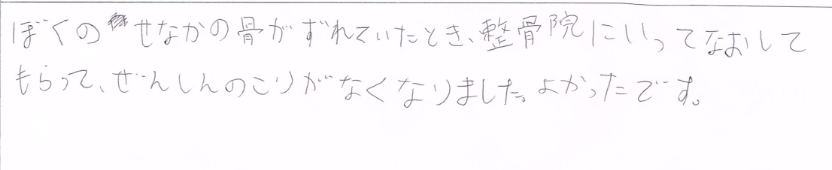 ぼくのせなかの骨がずれていたとき、整骨院にいってなおして
もらって、ぜんしんのこりがなくなりました。よかったです。